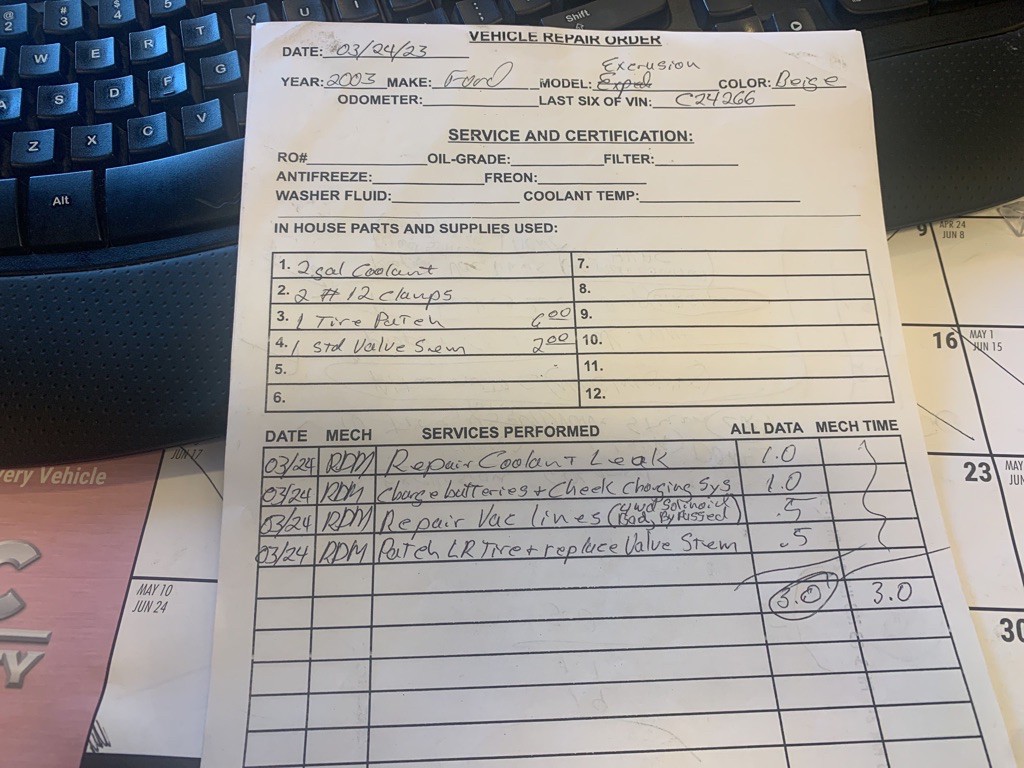 @ 2
# 3
$ 4
% 5
Y
U
I
Shift
W
E
R
T
A
S
D
F
G
Z
X
C
V
Alt
VEHICLE REPAIR ORDER
DATE: 03/24/23
Excrusion
YEAR: 2003 MAKE: Ford MODEL: Exped COLOR: Beige
ODOMETER: LAST SIX OF VIN: C24266
SERVICE AND CERTIFICATION:
RO# OIL-GRADE: FILTER:
ANTIFREEZE: FREON:
WASHER FLUID: COOLANT TEMP:
IN HOUSE PARTS AND SUPPLIES USED:
1. 2 gal Coolant 7.
2. 2 # 12 clamps 8.
3. 1 Tire Patch 6 00 9.
4. 1 std Valve Stem 2 00 10.
5. 11.
6. 12.
DATE MECH SERVICES PERFORMED ALL DATA MECH TIME
03/24 RDM Repair Coolant Leak 1.0
03/24 RDM Charge batteries + Check Charging Sys 1.0
03/24 RDM Repair Vac lines (4wd Solinoid Body By Passed) .5
03/24 RDM Patch LR Tire + replace Valve Stem .5
3.0 3.0
very Vehicle
C
Y
JUN 17
MAY 10
JUN 24
9 APR 24
JUN 8
16 MAY 1
JUN 15
23 MAY
JUN
30